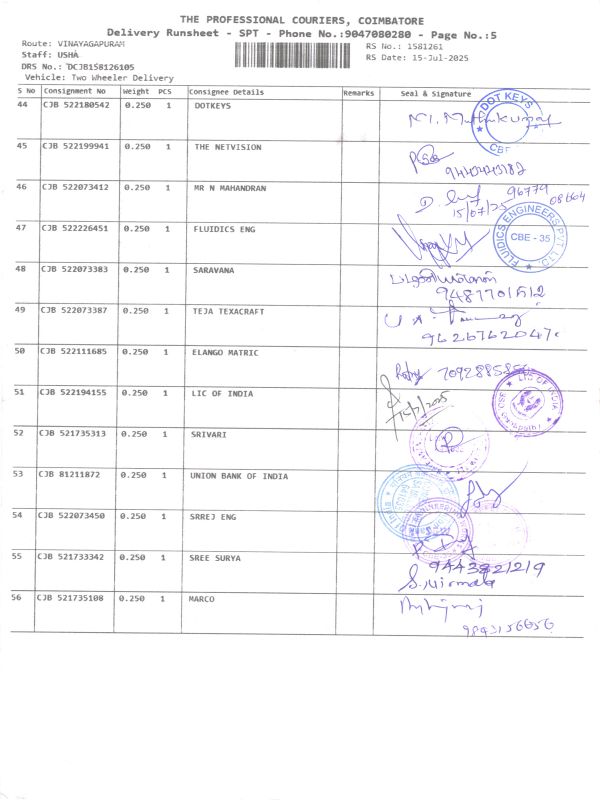 THE PROFESSIONAL COURIERS, COIMBATORE
Delivery Runsheet - SPT - Phone No.:9047080280 - Page No.:5
Route: VINAYAGAPURAM
RS No.: 1581261
Staff: USHA
RS Date: 15-Jul-2025
DRS No.: DCJB158126105
Vehicle: Two Wheeler Delivery
S No Consignment No Weight PCS Consignee Details Remarks Seal & Signature
44 CJB 522180542 0.250 1 DOTKEYS
DOT KEYS
CBE
45 CJB 522199941 0.250 1 THE NETVISION
46 CJB 522073412 0.250 1 MR N MAHANDRAN
96779
08664
15/07/25
47 CJB 522226451 0.250 1 FLUIDICS ENG
FLUIDICS ENGINEERS PVT LTD.
CBE - 35
48 CJB 522073383 0.250 1 SARAVANA
9487701512
49 CJB 522073387 0.250 1 TEJA TEXACRAFT
50 CJB 522111685 0.250 1 ELANGO MATRIC
51 CJB 522194155 0.250 1 LIC OF INDIA
LIC OF INDIA
15/7/2025
52 CJB 521735313 0.250 1 SRIVARI
53 CJB 81211872 0.250 1 UNION BANK OF INDIA
54 CJB 522073450 0.250 1 SRREJ ENG
55 CJB 521733342 0.250 1 SREE SURYA
9443821219
S. Nirmala
56 CJB 521735108 0.250 1 MARCO
9843156656